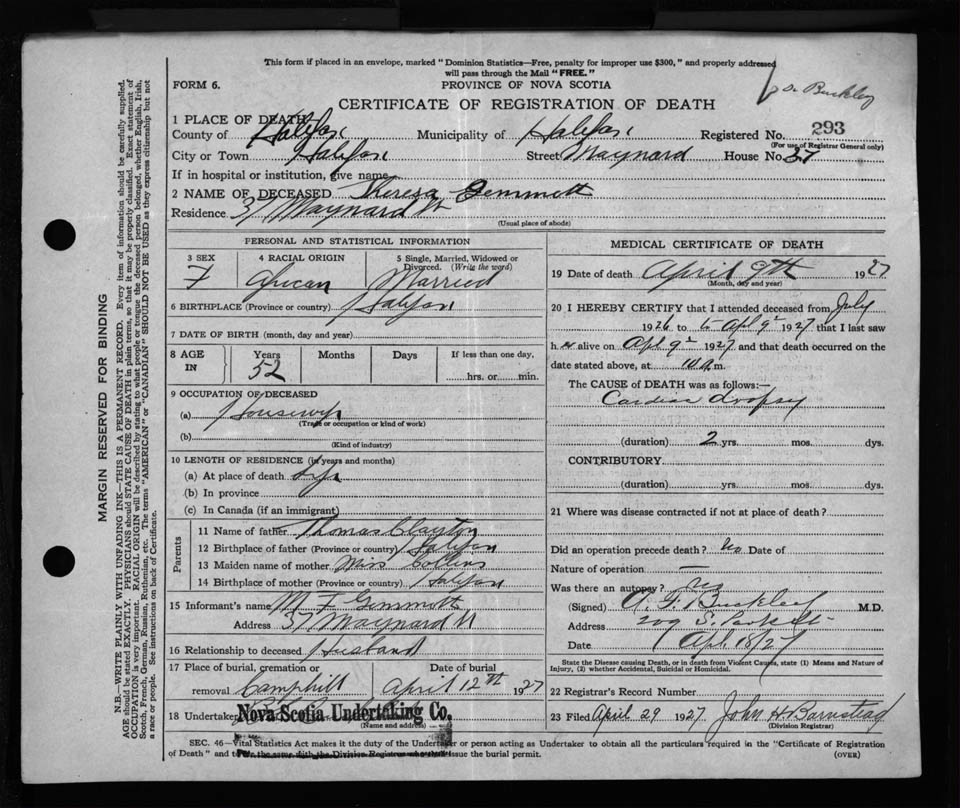 This form if placed in an envelope, marked "Dominion Statistics—Free, penalty for improper use $300," and properly addressed
will pass through the Mail "FREE."
Dr. Buckley
FORM 6.
PROVINCE OF NOVA SCOTIA
CERTIFICATE OF REGISTRATION OF DEATH
1 PLACE OF DEATH
County of Halifax Municipality of Halifax Registered No. 293
(For use of Registrar General only)
City or Town Halifax Street Maynard House No. 37
If in hospital or institution, give name
2 NAME OF DECEASED Theresa Gemmott
Residence 37 Maynard St
(Usual place of abode)
PERSONAL AND STATISTICAL INFORMATION
3 SEX 4 RACIAL ORIGIN 5 Single, Married, Widowed or
Divorced. (Write the word)
F African Married
6 BIRTHPLACE (Province or country) Halifax
7 DATE OF BIRTH (month, day and year)
8 AGE IN Years Months Days If less than one day,
52 hrs. or min.
9 OCCUPATION OF DECEASED
(a) Housewife
(Trade or occupation or kind of work)
(b)
(Kind of industry)
10 LENGTH OF RESIDENCE (in years and months)
(a) At place of death life
(b) In province
(c) In Canada (if an immigrant)
Parents
11 Name of father Thomas Clayton
12 Birthplace of father (Province or country) Halifax
13 Maiden name of mother Miss Collins
14 Birthplace of mother (Province or country) Halifax
15 Informant's name M F Gemmott
Address 37 Maynard St
16 Relationship to deceased Husband
17 Place of burial, cremation or Date of burial
removal Camphill April 12th 1927
18 Undertaker Nova Scotia Undertaking Co.
(Name and address)
MEDICAL CERTIFICATE OF DEATH
19 Date of death April 9th 1927
(Month, day and year)
20 I HEREBY CERTIFY that I attended deceased from July
1926 to Apl 9th 1927 that I last saw
h er alive on Apl 9th 1927 and that death occurred on the
date stated above, at 10 a m.
The CAUSE of DEATH was as follows:—
Cardiac dropsy
(duration) 2 yrs. mos. dys.
CONTRIBUTORY
(duration) yrs. mos. dys.
21 Where was disease contracted if not at place of death?
Did an operation precede death? No Date of
Nature of operation —
Was there an autopsy? no
(Signed) A. F. Buckley M.D.
Address 209 S. Park St
Date Apl 18/27
State the Disease causing Death, or in death from Violent Causes, state (1) Means and Nature of
Injury, (2) whether Accidental, Suicidal or Homicidal.
22 Registrar's Record Number
23 Filed April 29 1927 John H Barnstead
(Division Registrar)
SEC. 46—Vital Statistics Act makes it the duty of the Undertaker or person acting as Undertaker to obtain all the particulars required in the "Certificate of Registration
of Death" and to file the same with the Division Registrar who shall issue the burial permit. (OVER)
MARGIN RESERVED FOR BINDING
N.B.—WRITE PLAINLY WITH UNFADING INK—THIS IS A PERMANENT RECORD. Every item of information should be carefully supplied.
AGE should be stated EXACTLY. PHYSICIANS should STATE CAUSE OF DEATH in plain terms, so that it may be properly classified. Exact statement of
OCCUPATION is very important. RACIAL ORIGIN will be described by stating to what people or tongue the deceased person belonged, whether English, Irish,
Scotch, French, German, Russian, Ruthenian, etc. The terms "AMERICAN" or "CANADIAN" SHOULD NOT BE USED as they express citizenship but not
a race or people. See instructions on back of Certificate.